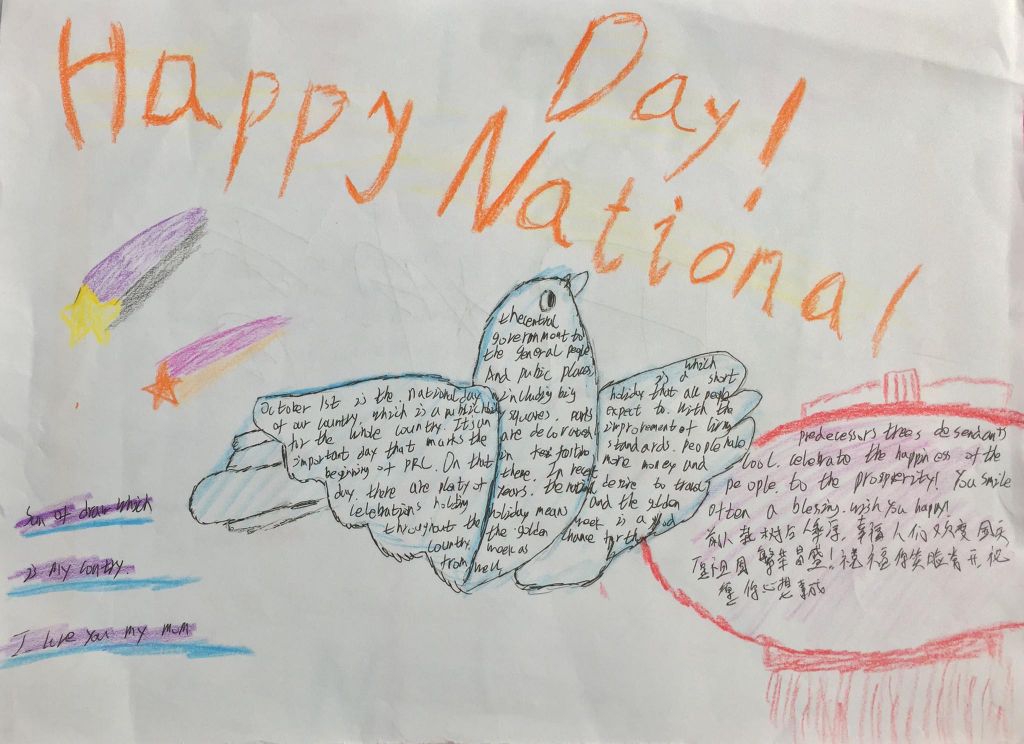 Happy
Day!
National
October 1st is the national day
of our country, which is a public
for the whole country. It's an
important day that marks the
beginning of PRC. On that
day, there are platy of
celebrations holiday
throughout the
country
from
the central
government to
the general people
And pubic places
including big
squares. parks
are decorated
in
there. In recent
years. the national
holiday means
the golden
week as
well
which
is a short
holiday that all people
expect to. with the
improrement of living
standards. people hale
more money and
desire to travel
and the golden
week is a
chance for th
predecessors trees desendants
cool. celebrate the happiness of the
people. to the prosperity! You smile
often a blessing. wish you happy!
前人栽树后人乘凉，幸福人们欢度国庆
祖国繁华昌盛！祝福你笑脸常开，祝
你心想事成
my contry
I love you my mum